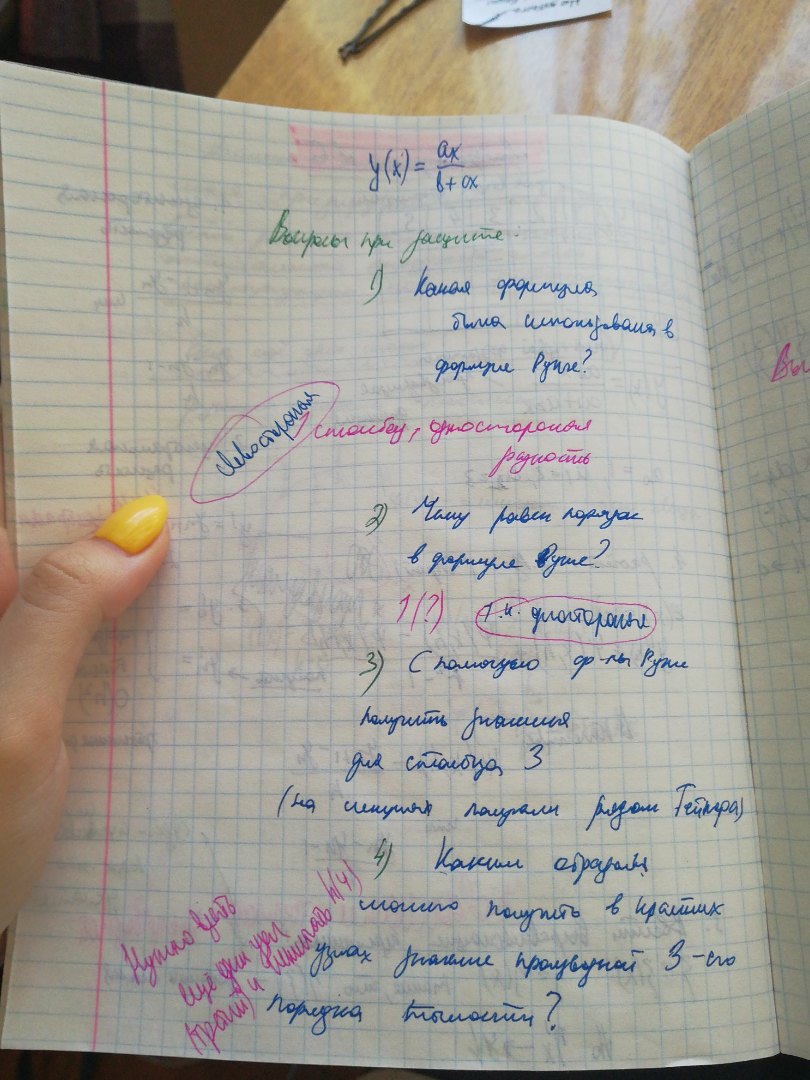 y(x) = ax / b + ax
Вопросы при защите:
1) Какая формула
была использована в
формуле Рунге?
Левостороняя
1 столбец, одностороняя
разность
2) Чему равен порядок
в формуле Рунге?
1(?) т.к. одностороняя
3) С помощью ф-лы Рунге
получить значения
для столбца 3
(на лекциях получали рядом Тейлора)
4) Каким образом
можно получить в крайних
узлах значение производной 3-его
порядка точности?
Нужно взять
ещё один узел
(третий) и
h(4)